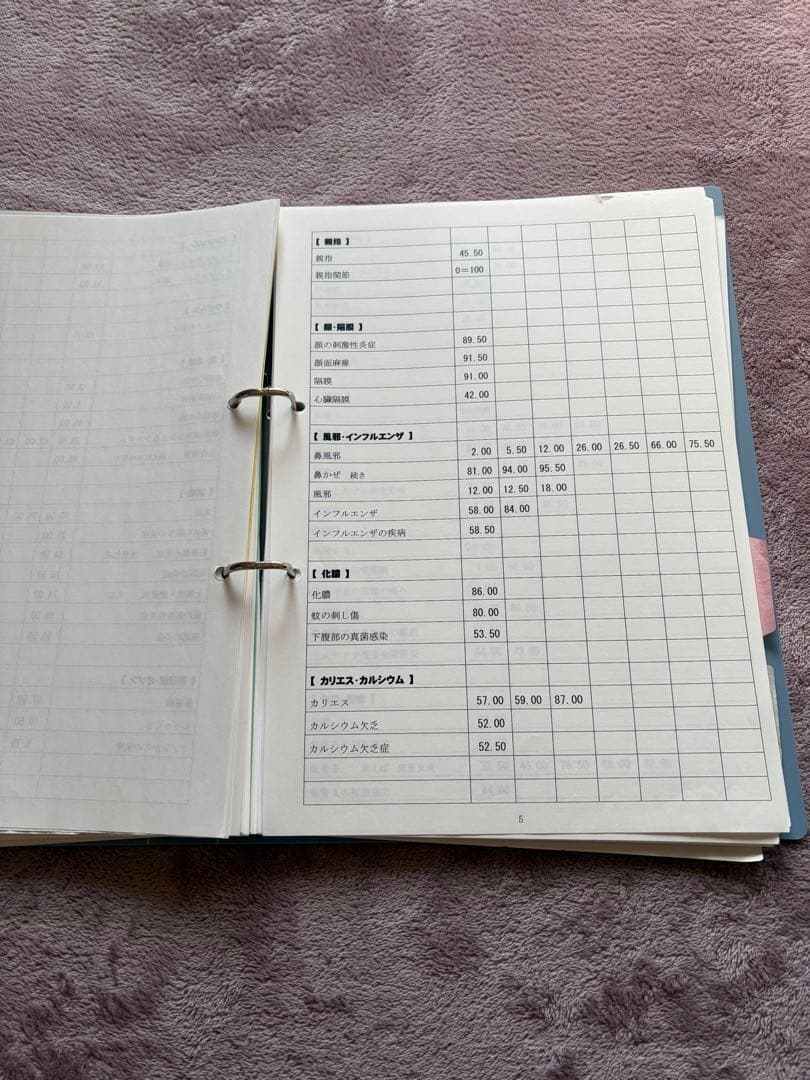 【 親指 】
親指 45.50
親指関節 0＝100
【 顔・隔膜 】
顔の刺激性炎症 89.50
顔面麻痺 91.50
隔膜 91.00
心臓隔膜 42.00
【 風邪・インフルエンザ 】
鼻風邪 2.00 5.50 12.00 26.00 26.50 66.00 75.50
鼻かぜ 続き 81.00 94.00 95.50
風邪 12.00 12.50 18.00
インフルエンザ 58.00 84.00
インフルエンザの疾病 58.50
【 化膿 】
化膿 86.00
蚊の刺し傷 80.00
下腹部の真菌感染 53.50
【 カリエス・カルシウム 】
カリエス 57.00 59.00 87.00
カルシウム欠乏 52.00
カルシウム欠乏症 52.50
5